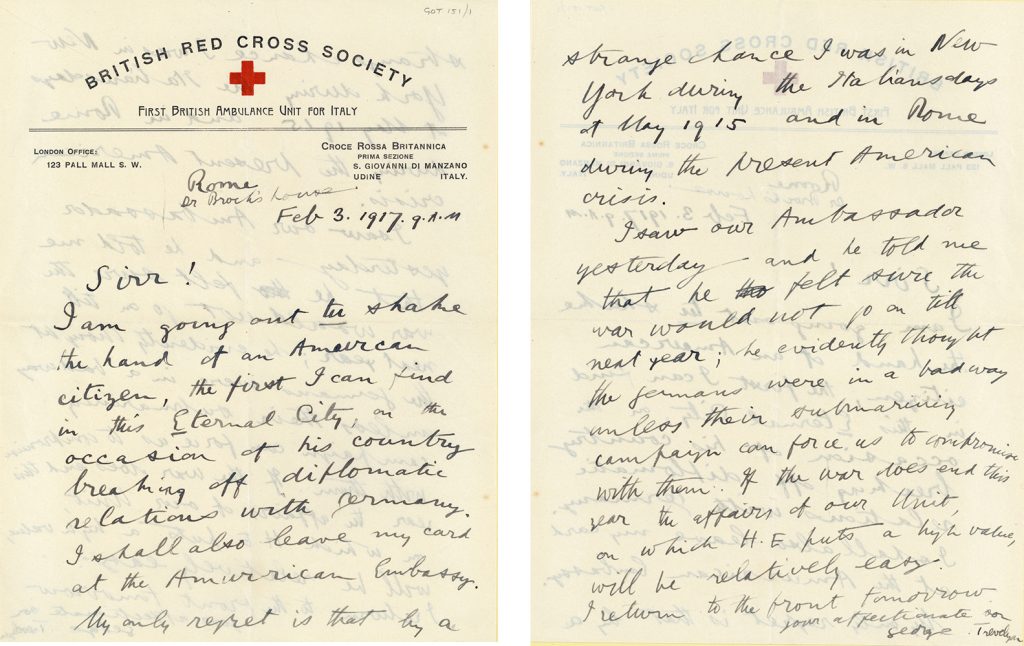 GOT 151/1
BRITISH RED CROSS SOCIETY
FIRST BRITISH AMBULANCE UNIT FOR ITALY
LONDON OFFICE:
123 PALL MALL S. W.
CROCE ROSSA BRITANNICA
PRIMA SEZIONE
S. GIOVANNI DI MANZANO
UDINE ITALY.
Rome
Dr Brock's house
Feb 3. 1917. 9. A.M
Sirr!
I am going out to shake
the hand of an American
citizen, the first I can find
in this Eternal City, on the
occasion of his country
breaking off diplomatic
relations with Germany.
I shall also leave my card
at the American Embassy.
My only regret is that by a
strange chance I was in New
York during the Italians days
of May 1915 and in Rome
during the present American
crisis.
I saw our Ambassador
yesterday - and he told me
that he felt sure the
war would not go on till
next year; he evidently thought
the Germans were in a bad way
unless their submarining
campaign can force us to compromise
with them. If the war does end this
year the affairs of our Unit,
on which H.E puts a high value,
will be relatively easy.
I return to the front tomorrow
your affectionate son
George. Trevelyan